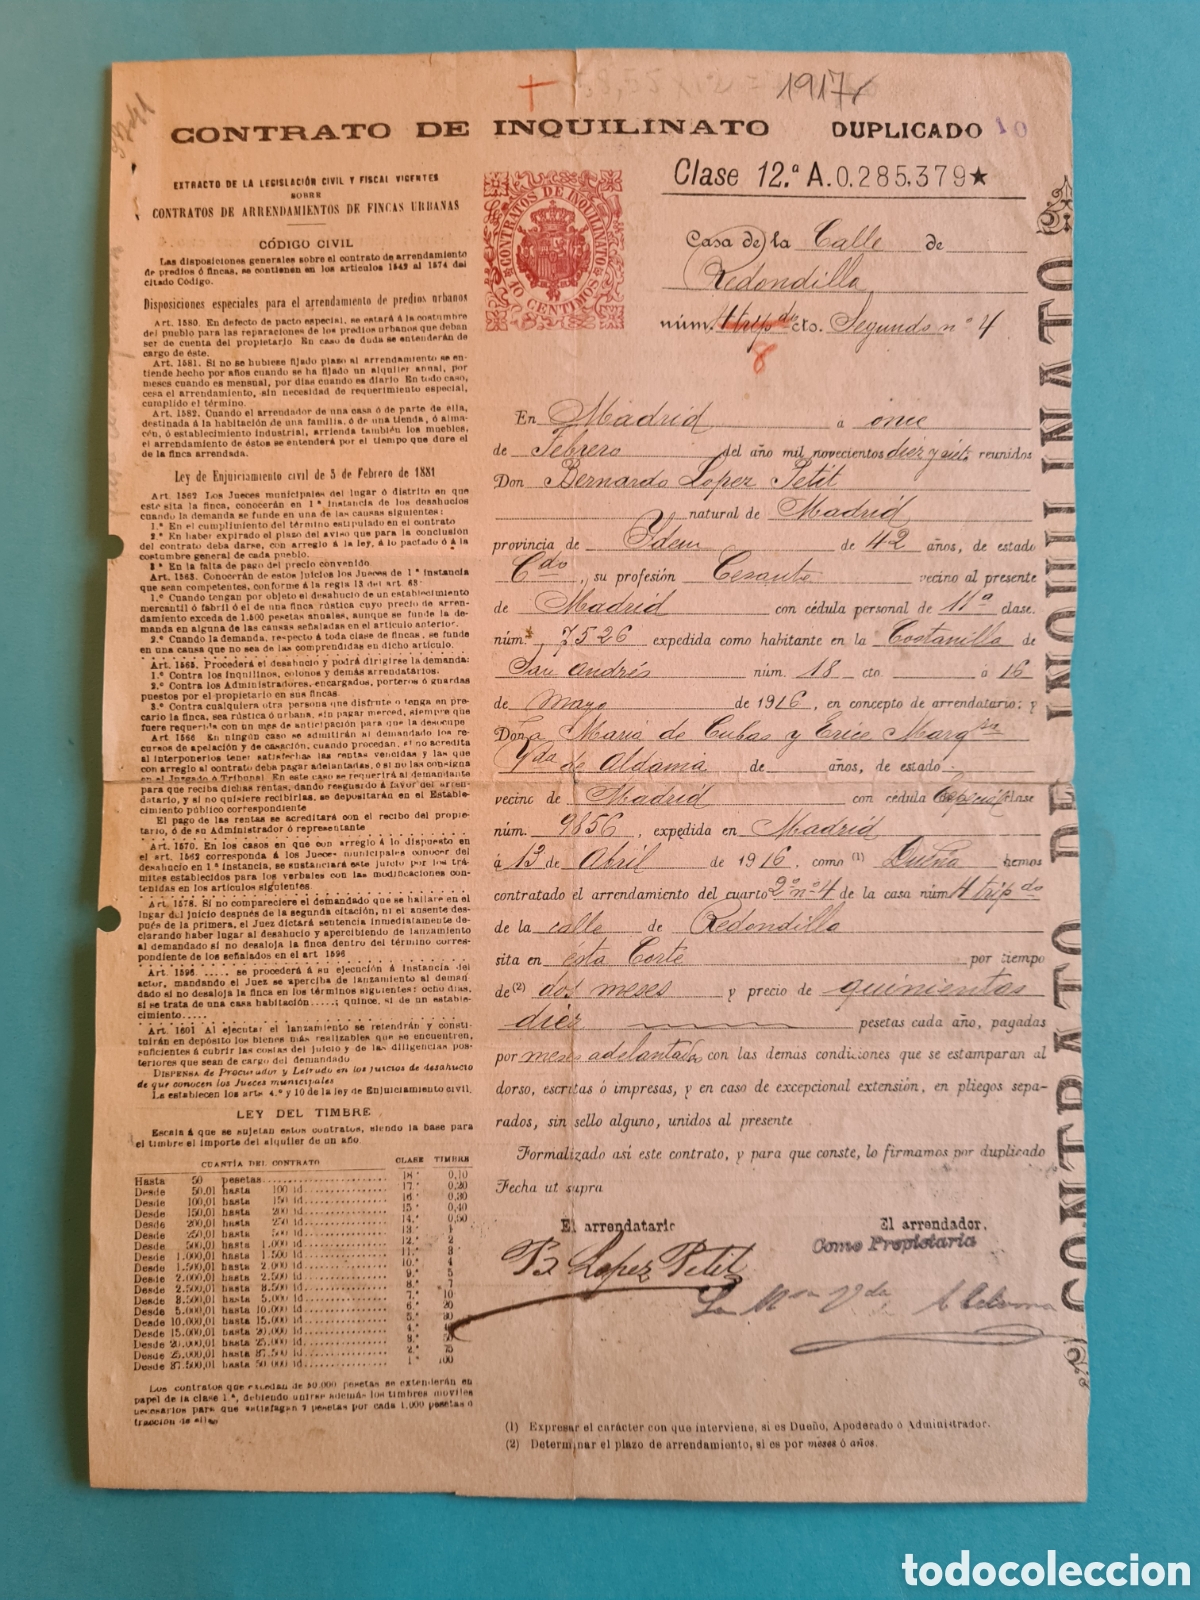 1917
CONTRATO DE INQUILINATO DUPLICADO 10
Clase 12.ª A.0.285,379★
CONTRATOS DE INQUILINATO
10 CENTIMOS
EXTRACTO DE LA LEGISLACIÓN CIVIL Y FISCAL VIGENTES
SOBRE
CONTRATOS DE ARRENDAMIENTOS DE FINCAS URBANAS
CÓDIGO CIVIL
Las disposiciones generales sobre el contrato de arrendamiento
de predios ó fincas, se contienen en los artículos 1542 al 1574 del
citado Código.
Disposiciones especiales para el arrendamiento de predios urbanos
Art. 1580. En defecto de pacto especial, se estará á la costumbre
del pueblo para las reparaciones de los predios urbanos que deban
ser de cuenta del propietario En caso de duda se entenderán de
cargo de éste.
Art. 1581. Si no se hubiese fijado plazo al arrendamiento se en-
tiende hecho por años cuando se ha fijado un alquiler anual, por
meses cuando es mensual, por días cuando es diario En todo caso,
cesa el arrendamiento, sin necesidad de requerimiento especial,
cumplido el término.
Art. 1582. Cuando el arrendador de una casa ó de parte de ella,
destinada á la habitación de una familia, ó de una tienda, ó alma-
cén, ó establecimiento industrial, arrienda también los muebles,
el arrendamiento de éstos se entenderá por el tiempo que dure el
de la finca arrendada.
Ley de Enjuiciamiento civil de 3 de Febrero de 1881
Art. 1562 Los Jueces municipales del lugar ó distrito en que
esté sita la finca, conocerán en 1.ª instancia de los desahucios
cuando la demanda se funde en una de las causas siguientes:
1.ª En el cumplimiento del término estipulado en el contrato
2.ª En haber expirado el plazo del aviso que para la conclusión
del contrato deba darse, con arreglo á la ley, á lo pactado ó á la
costumbre general de cada pueblo.
3.ª En la falta de pago del precio convenido
Art. 1563. Conocerán de estos juicios los Jueces de 1.ª instancia
que sean competentes, conforme á la regla 13 del art. 63:
1.º Cuando tengan por objeto el desahucio de un establecimiento
mercantil ó fabril ó el de una finca rústica cuyo precio de arren-
damiento exceda de 1.500 pesetas anuales, aunque se funde la de-
manda en alguna de las causas señaladas en el artículo anterior.
2.º Cuando la demanda, respecto á toda clase de fincas, se funde
en una causa que no sea de las comprendidas en dicho artículo.
Art. 1565. Procederá el desahucio y podrá dirigirse la demanda:
1.º Contra los inquilinos, colonos y demás arrendatarios.
2.º Contra los Administradores, encargados, porteros ó guardas
puestos por el propietario en sus fincas.
3.º Contra cualquiera otra persona que disfrute o tenga en pre-
cario la finca, sea rústica ó urbana, sin pagar merced, siempre que
fuere requerida con un mes de anticipación para que la desocupe
Art. 1566 En ningún caso se admitirán al demandado los re-
cursos de apelación y de casación, cuando procedan, si no acredita
al interponerlos tener satisfechas las rentas vencidas y las que
con arreglo al contrato deba pagar adelantadas, ó si no las consigna
en el Juzgado ó Tribunal. En este caso se requerirá al demandante
para que reciba dichas rentas, dando resguardo á favor del arren-
datario, y si no quisiere recibirlas, se depositarán en el Estable-
cimiento público correspondiente
El pago de las rentas se acreditará con el recibo del propie-
tario, ó de su Administrador ó representante
Art. 1570. En los casos en que con arreglo á lo dispuesto en
el art. 1562 corresponda á los Jueces municipales conocer del
desahucio en 1.ª instancia, se sustanciará este juicio por los trá-
mites establecidos para los verbales con las modificaciones con-
tenidas en los artículos siguientes.
Art. 1578. Si no compareciere el demandado que se hallare en el
lugar del juicio después de la segunda citación, ni el ausente des-
pués de la primera, el Juez dictará sentencia inmediatamente de-
clarando haber lugar al desahucio y apercibiendo de lanzamiento
al demandado si no desaloja la finca dentro del término corres-
pondiente de los señalados en el art 1596
Art. 1596 ..... se procederá á su ejecución á instancia del
actor, mandando el Juez se aperciba de lanzamiento al deman
dado si no desaloja la finca en los términos siguientes: ocho días,
si se trata de una casa habitación.....; quince, si de un estable-
cimiento.....
Art. 1601 Al ejecutar el lanzamiento se retendrán y consti-
tuirán en depósito los bienes más realizables que se encuentren,
suficientes á cubrir las costas del juicio y de las diligencias pos-
teriores que sean de cargo del demandado
DISPENSA de Procurador y Letrado en los juicios de desahucio
de que conocen los Jueces municipales
La establecen los arts 4.º y 10 de la ley de Enjuiciamiento civil.
LEY DEL TIMBRE
Escala á que se sujetan estos contratos, siendo la base para
el timbre el importe del alquiler de un año.
CUANTÍA DEL CONTRATO CLASE TIMBRE
Hasta 50 pesetas 18.ª 0,10
Desde 50,01 hasta 100 id 17.ª 0,20
Desde 100,01 hasta 150 id 16.ª 0,30
Desde 150,01 hasta 200 id 15.ª 0,40
Desde 200,01 hasta 250 id 14.ª 0,50
Desde 250,01 hasta 500 id 13.ª 1
Desde 500,01 hasta 1.000 id 12.ª 2
Desde 1.000,01 hasta 1.500 id 11.ª 3
Desde 1.500,01 hasta 2.000 id 10.ª 4
Desde 2.000,01 hasta 2.500 id 9.ª 5
Desde 2.500,01 hasta 3.500 id 8.ª 7
Desde 3.500,01 hasta 5.000 id 7.ª 10
Desde 5.000,01 hasta 10.000 id 6.ª 20
Desde 10.000,01 hasta 15.000 id 5.ª 30
Desde 15.000,01 hasta 20.000 id 4.ª 40
Desde 20.000,01 hasta 25.000 id 3.ª 50
Desde 25.000,01 hasta 37.500 id 2.ª 75
Desde 37.500,01 hasta 50.000 id 1.ª 100
Los contratos que excedan de 50.000 pesetas se extenderán en
papel de la clase 1.ª, debiendo unirse además los timbres móviles
necesarios para que satisfagan 2 pesetas por cada 1.000 pesetas ó
fracción de ellas
Casa de la Calle de
Redondilla
núm. 4 trip.do cto. Segundo nº 4
8
En Madrid a once
de Febrero del año mil novecientos diez y siete reunidos
Don Bernardo Lopez Petit
natural de Madrid
provincia de Idem de 42 años, de estado
Cdo, su profesión Cesante vecino al presente
de Madrid con cédula personal de 11ª clase.
núm. 7526 expedida como habitante en la Costanilla de
San Andrés núm. 18 cto. á 16
de mayo de 1916, en concepto de arrendatario; y
Doña Maria de Cubas y Erice Marqsa
Vda de Aldama de años, de estado
vecino de Madrid con cédula Especial clase
núm. 9856, expedida en Madrid
á 12 de Abril de 1916, como (1) Dueña hemos
contratado el arrendamiento del cuarto 2º nº 4 de la casa núm. 4 trip.do
de la calle de Redondilla
sita en ésta Corte por tiempo
de (2) dos meses y precio de quinientas
diez pesetas cada año, pagadas
por meses adelantados con las demas condiciones que se estamparan al
dorso, escritas ó impresas, y en caso de excepcional extensión, en pliegos sepa-
rados, sin sello alguno, unidos al presente
Formalizado así este contrato, y para que conste, lo firmamos por duplicado
Fecha ut supra
El arrendatario El arrendador.
Como Propietaria
B Lopez Petit
La Mqsa Vda de Aldama
(1) Expresar el carácter con que interviene, si es Dueño, Apoderado ó Administrador.
(2) Determinar el plazo de arrendamiento, si es por meses ó años.
CONTRATO DE INQUILINATO
todocoleccion